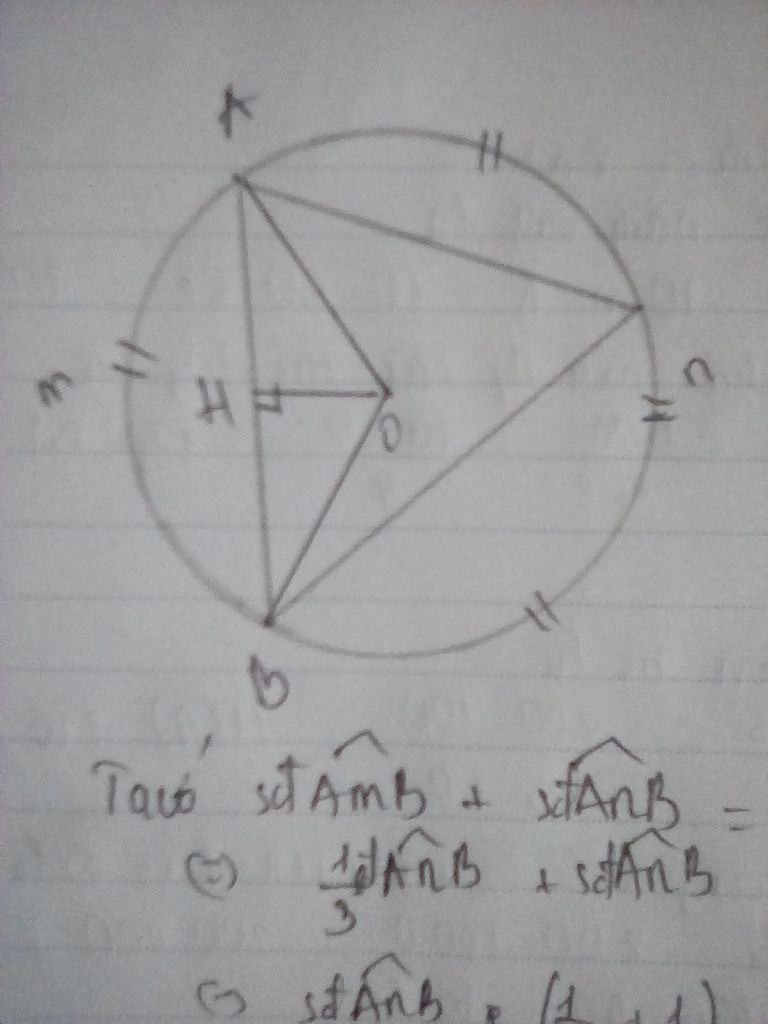 A
m
n
H
O
B
Ta có sđ AmB + sđ AnB =
⇔ 1/3 sđ AnB + sđ AnB
⇔ sđ AnB . (1/3 + 1)